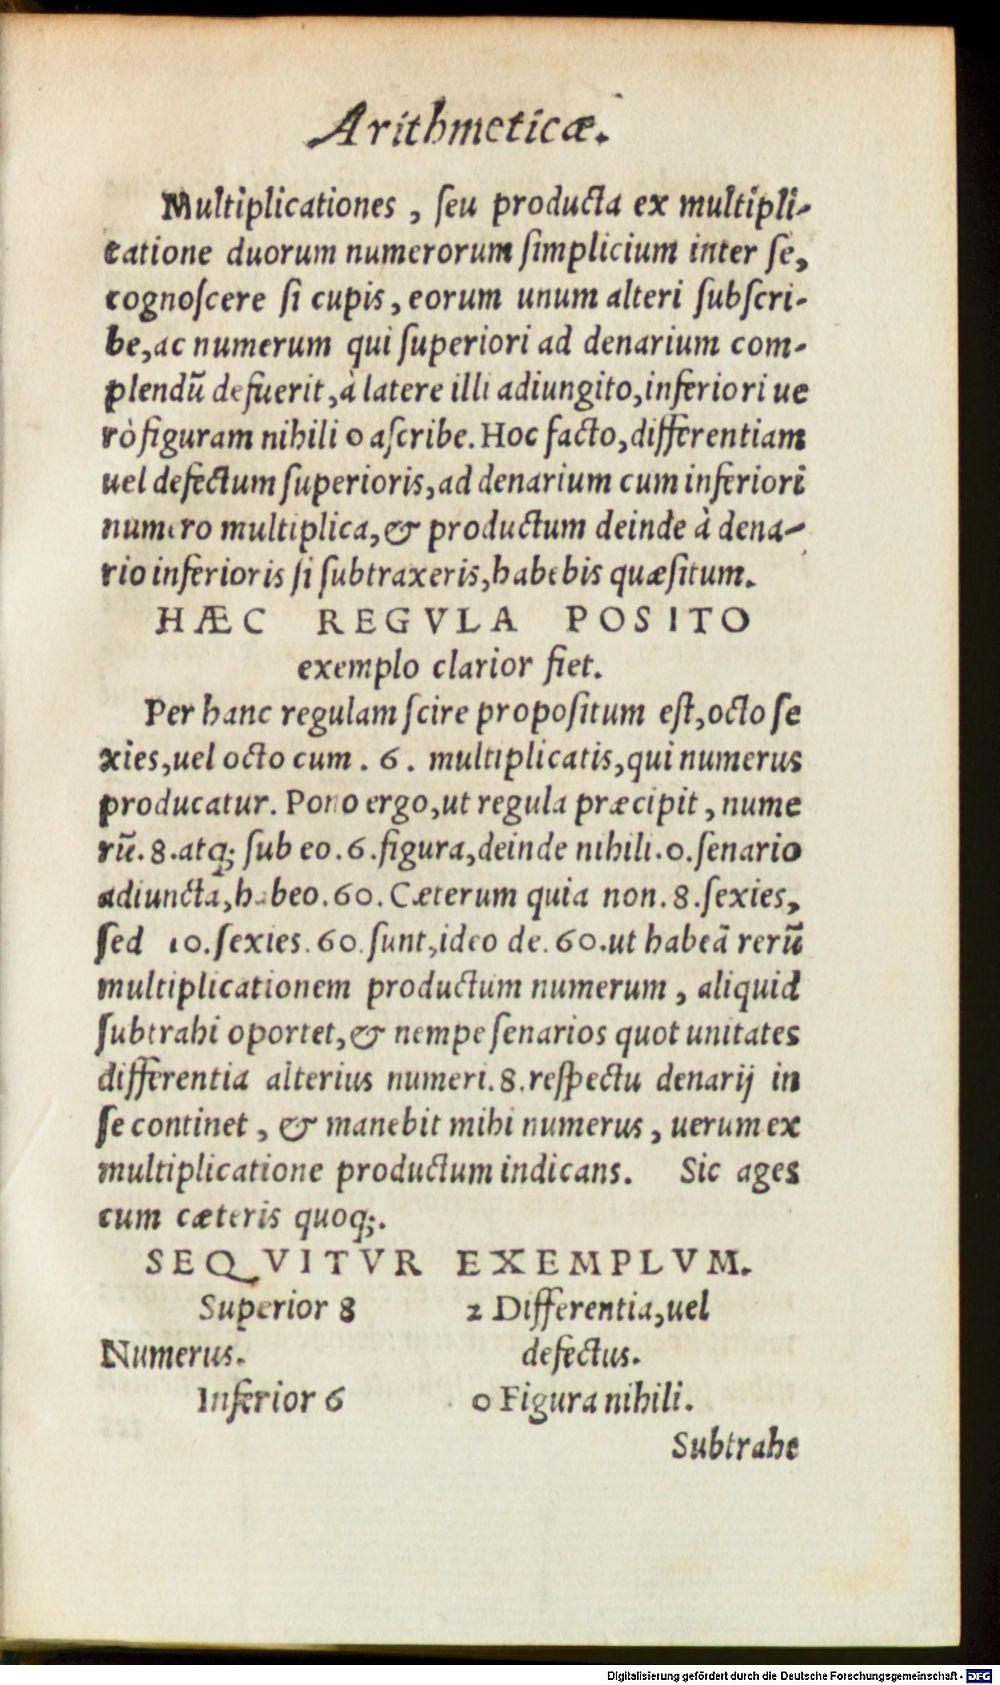 Arithmeticæ.
Multiplicationes, ſeu producta ex multipli-
catione duorum numerorum ſimplicium inter ſe,
cognoſcere ſi cupis, eorum unum alteri ſubſcri-
be, ac numerum qui ſuperiori ad denarium com-
plendũ defuerit, à latere illi adiungito, inferiori ue
rò figuram nihili 0 aſcribe. Hoc facto, differentiam
uel defectum ſuperioris, ad denarium cum inferiori
numero multiplica, & productum deinde à dena-
rio inferioris ſi ſubtraxeris, habebis quæſitum.
HÆC REGVLA POSITO
exemplo clarior fiet.
Per hanc regulam ſcire propoſitum eſt, octo ſe
xies, uel octo cum . 6 . multiplicatis, qui numerus
producatur. Pono ergo, ut regula præcipit, nume
rũ. 8. atq; ſub eo . 6 . figura, deinde nihili . 0 . ſenario
adiuncta, habeo . 60 . Cæterum quia non . 8 . ſexies,
ſed 10 . ſexies . 60 . ſunt, ideo de . 60 . ut habeã rerũ
multiplicationem productum numerum, aliquid
ſubtrahi oportet, & nempe ſenarios quot unitates
differentia alterius numeri . 8 . reſpectu denarij in
ſe continet, & manebit mihi numerus, uerum ex
multiplicatione productum indicans. Sic ages
cum cæteris quoq;.
SEQVITVR EXEMPLVM.
Superior 8 2 Differentia, uel
Numerus. defectus.
Inferior 6 0 Figura nihili.
Subtrahe
Digitalisierung gefördert durch die Deutsche Forschungsgemeinschaft - DFG